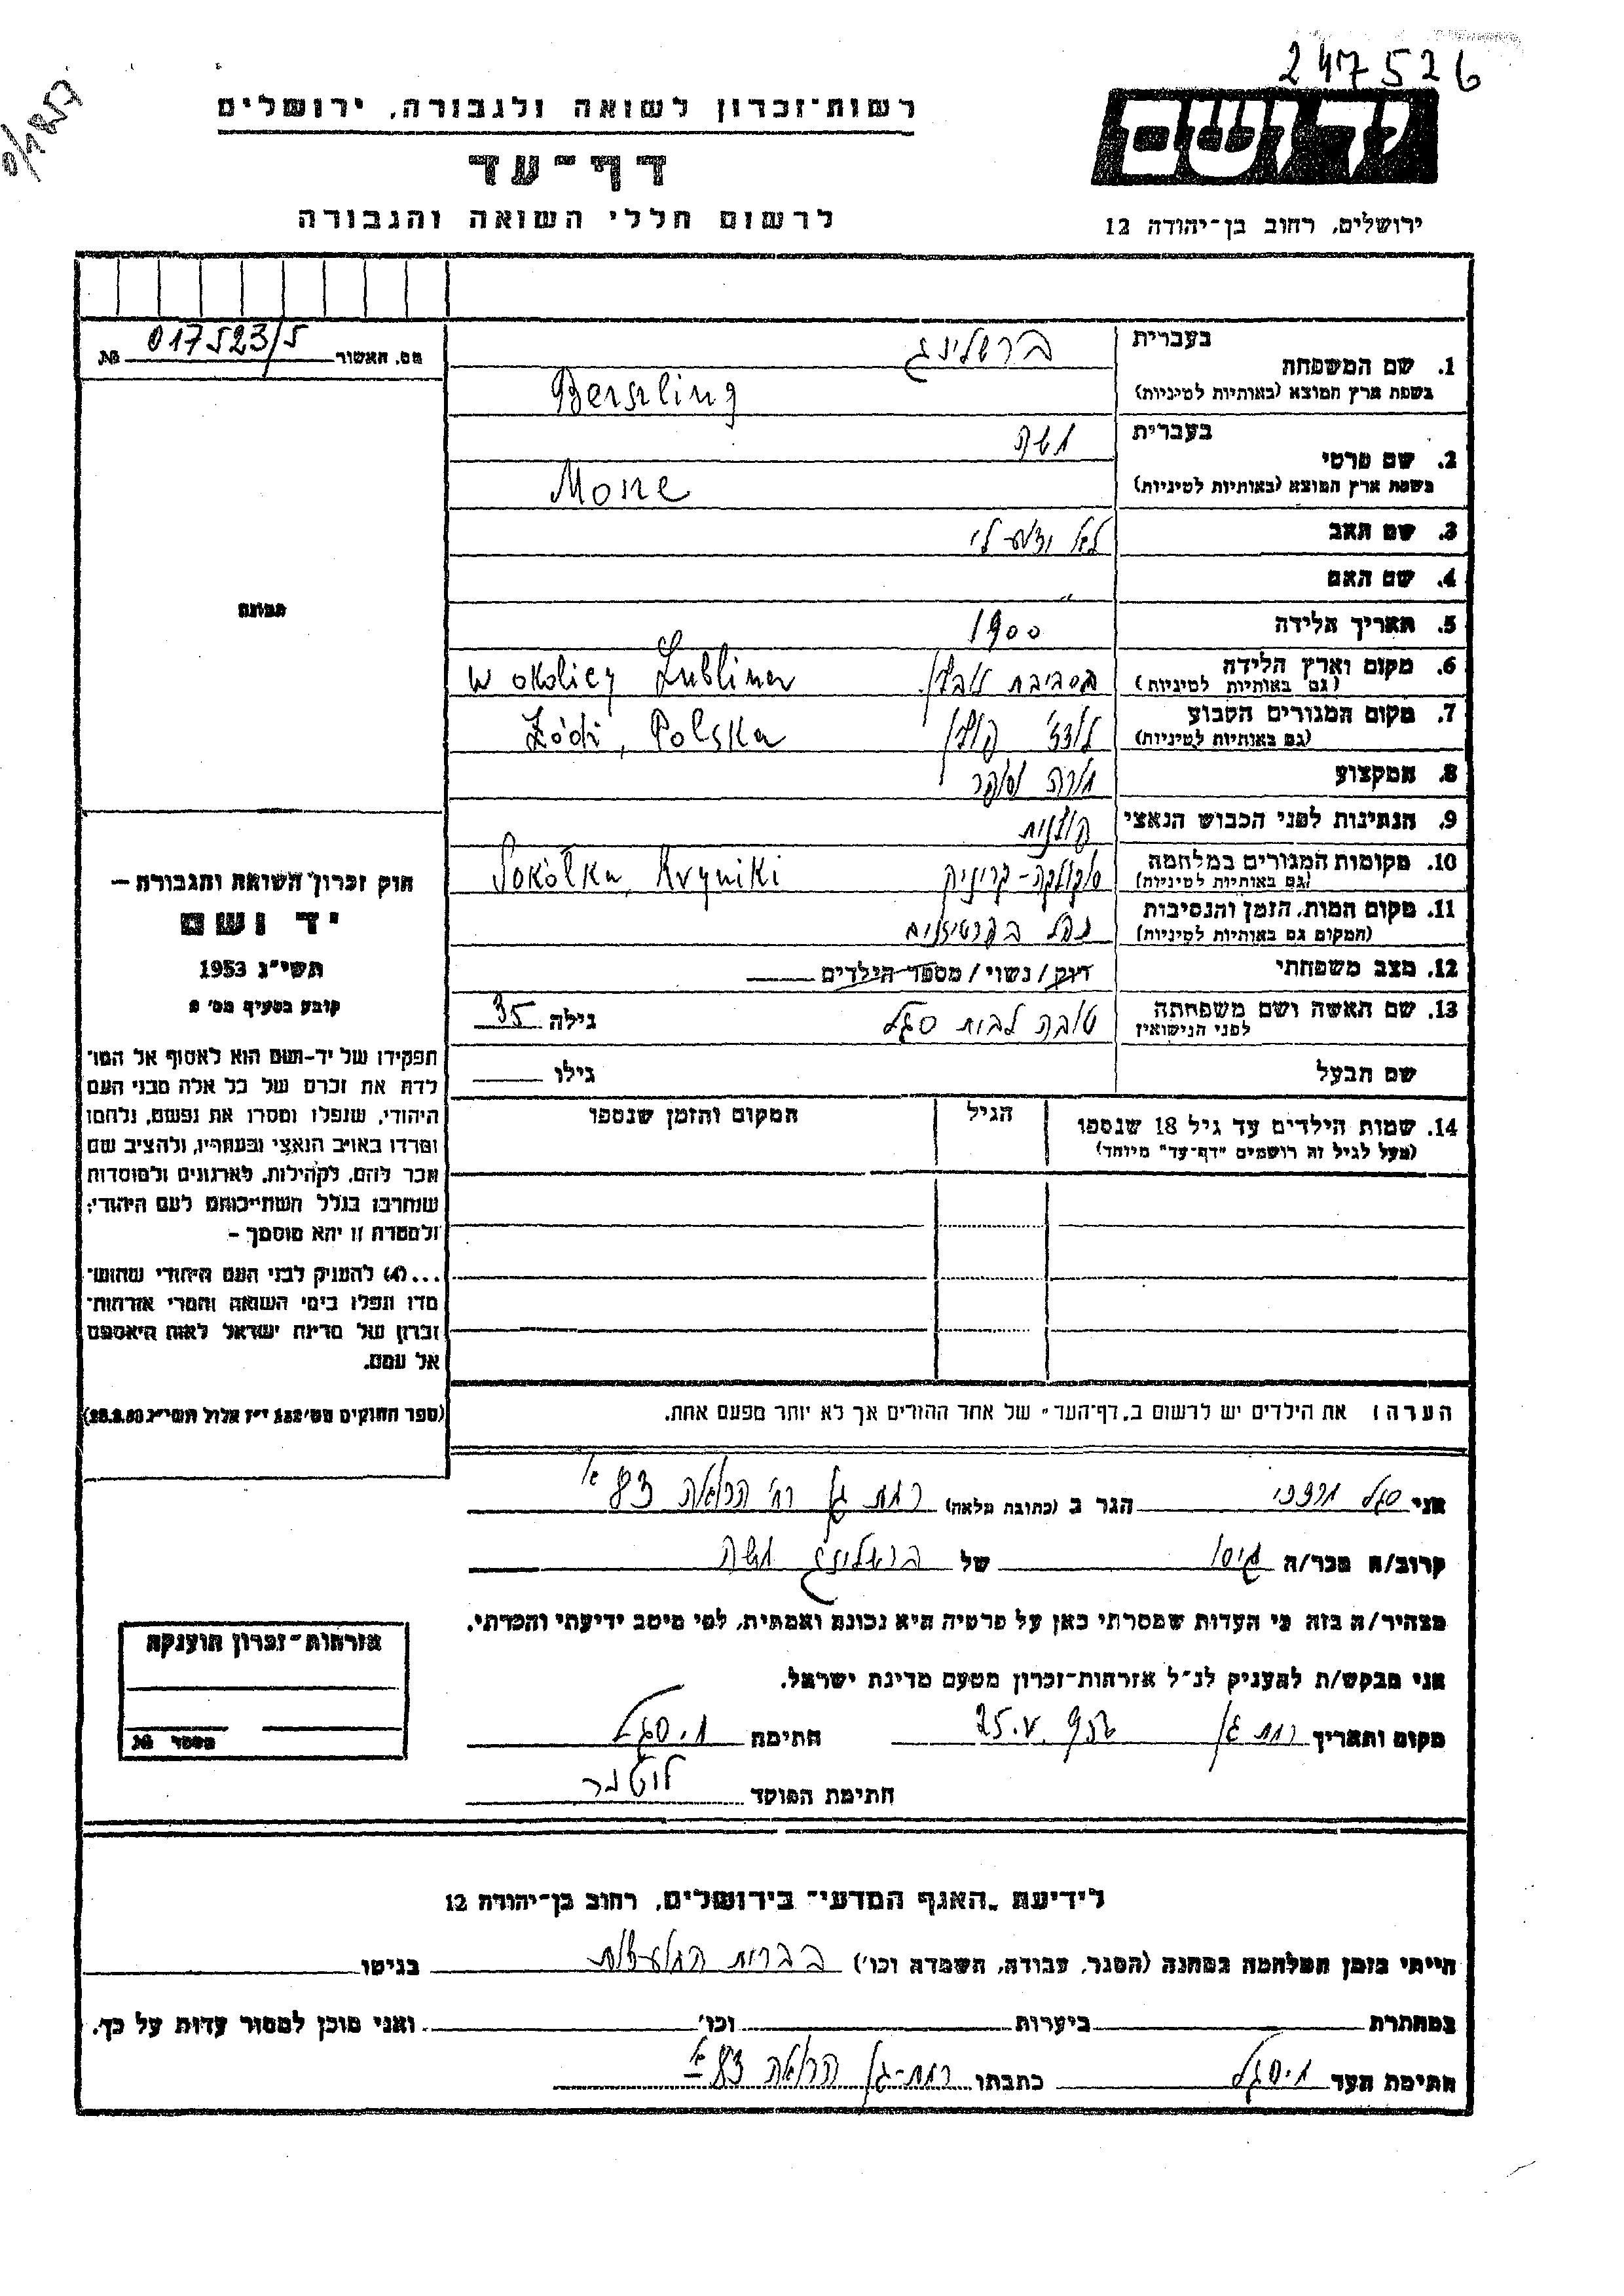 247526
רשות־זכרון לשואה ולגבורה, ירושלים
דף־עד
לרשום חללי השואה והגבורה
יד ושם
ירושלים, רחוב בן־יהודה 12
מס. האשור 017523/5 №
תמונה
חוק זכרון השואה והגבורה —
יד ושם
תשי״ג 1953
קובע בסעיף מס׳ 2
תפקידו של יד-ושם הוא לאסוף אל המו־
לדת את זכרם של כל אלה מבני העם
היהודי, שנפלו ומסרו את נפשם, נלחמו
ומרדו באויב הנאצי ובעוזריו, ולהציב שם
וזכר להם, לקהילות, לארגונים ולמוסדות
שנחרבו בגלל השתייכותם לעם היהודי;
ולמטרה זו יהא מוסמך —
...(4) להעניק לבני העם היהודי שהוש־
מדו ונפלו בימי השואה והמרי אזרחות־
זכרון של מדינת ישראל לאות היאספם
אל עמם.
(ספר החוקים מס׳ 132 י״ז אלול תשי״ג 28.8.53)
בעברית ברשלינג
1. שם המשפחה
בשפת ארץ המוצא (באותיות לטיניות) Berszling
בעברית משה
2. שם פרטי
בשפת ארץ המוצא (באותיות לטיניות) Mosze
3. שם האב לא ידוע לי
4. שם האם ״
5. תאריך הלידה 1900
6. מקום וארץ הלידה בסביבת לובלין w okolicy Lublina
(גם באותיות לטיניות)
7. מקום המגורים הקבוע לודז׳ פולין Łódź, Polska
(גם באותיות לטיניות)
8. המקצוע מורה
9. הנתינות לפני הכבוש הנאצי פולנית
10. מקומות המגורים במלחמה סוקולקה-קריניק Sokółka, Kryniki
(גם באותיות לטיניות)
11. מקום המות, הזמן והנסיבות נפל בפרטיזנים
(המקום גם באותיות לטיניות)
12. מצב משפחתי רווק/נשוי/מספר הילדים
13. שם האשה ושם משפחתה טובה לבית סגל גילה 35
לפני הנישואין
שם הבעל גילו
14. שמות הילדים עד גיל 18 שנספו הגיל המקום והזמן שנספו
(מעל לגיל זה רושמים "דף־עד" מיוחד)
הערה: את הילדים יש לרשום ב„דף־העד״ של אחד ההורים אך לא יותר מפעם אחת.
אני סגל מרדכי הגר ב (כתובת מלאה) רמת גן רח׳ הרואה 83 א
קרוב/ה מכר/ה גיסו של ברשלינג משה
מצהיר/ה בזה כי העדות שמסרתי כאן על פרטיה היא נכונה ואמתית, לפי מיטב ידיעתי והכרתי.
אני מבקש/ת להעניק לנ״ל אזרחות־זכרון מטעם מדינת ישראל.
מקום ותאריך רמת גן 25.V. חתימה מ. סגל
חתימת הפוקד
אזרחות־זכרון הוענקה
מספר №
לידיעת „האגף המדעי״ בירושלים, רחוב בן־יהודה 12
הייתי בזמן המלחמה במחנה (הסגר, עבודה, השמדה וכו׳) בברית המועצות בגיטו
במחתרת ביערות וכו׳ ואני מוכן למסור עדות על כך.
חתימת העד מ. סגל כתבתו רמת-גן הרואה 83 א